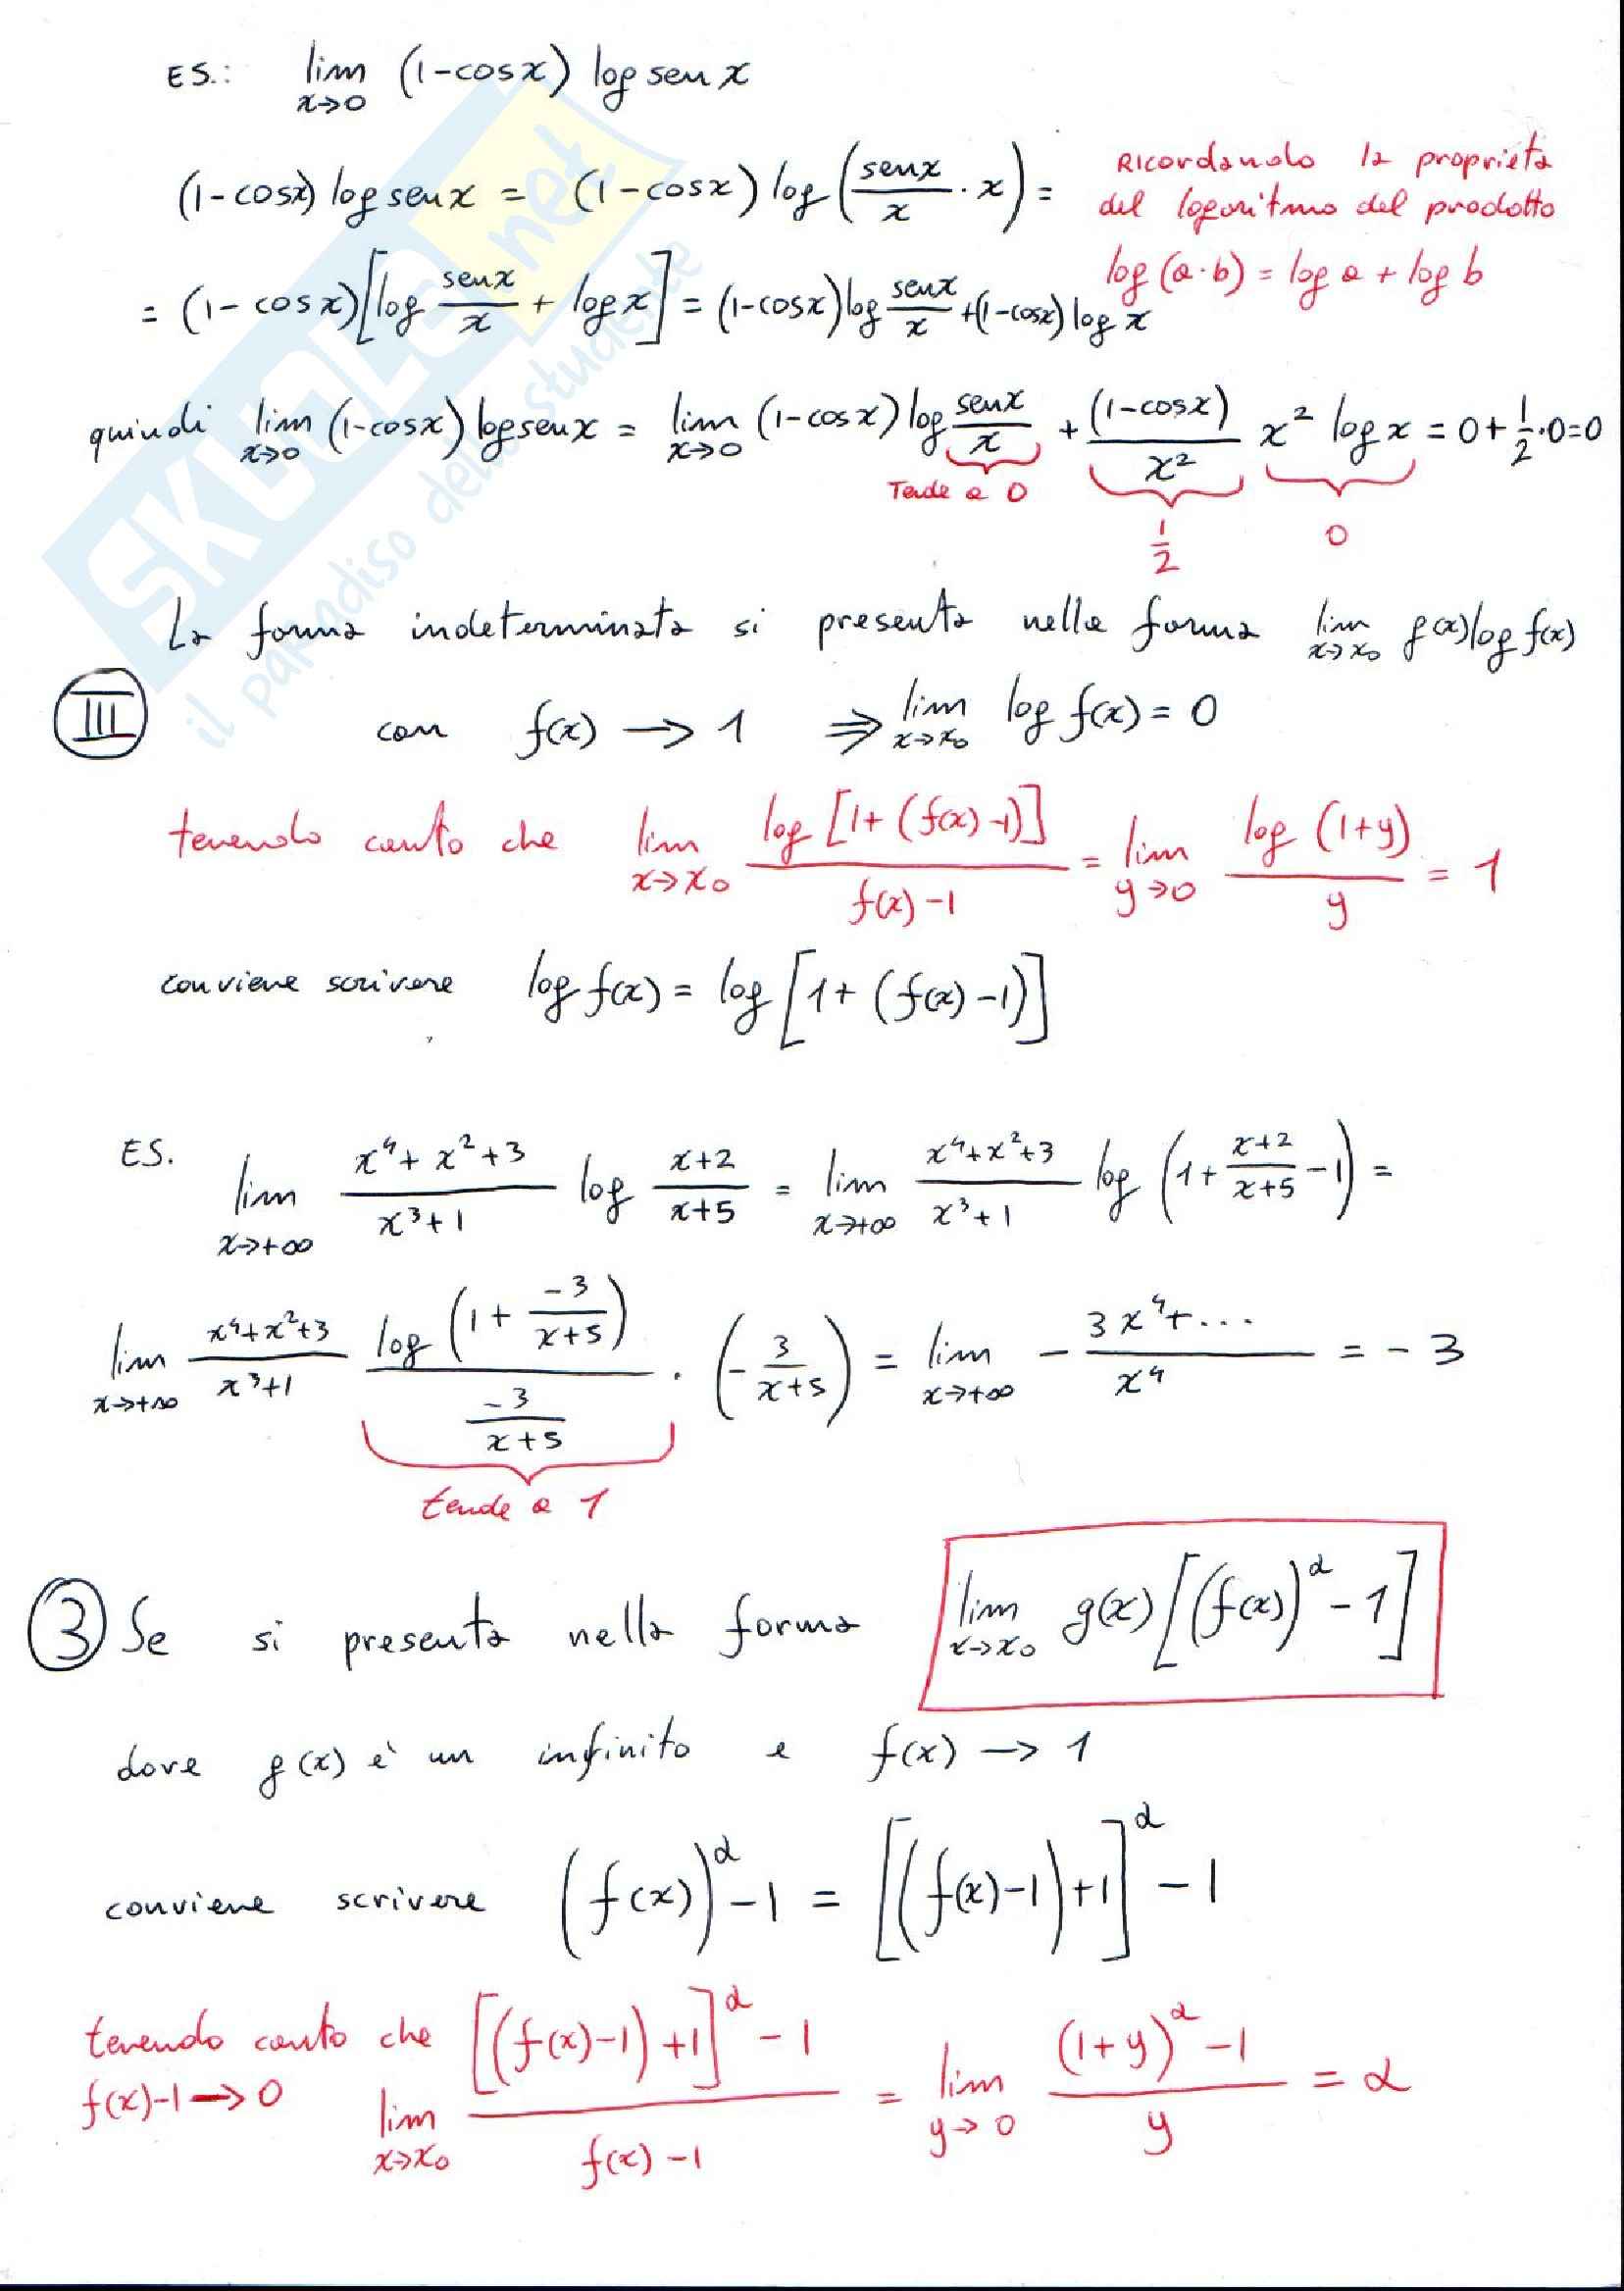 ES.: lim x→0 (1-cosx) log sen x
(1-cosx) log sen x = (1-cosx) log (senx/x · x) =
Ricordando la proprietà
del logaritmo del prodotto
log (a·b) = log a + log b
= (1-cosx)[log senx/x + log x] = (1-cosx) log senx/x + (1-cosx) log x
quindi lim x→0 (1-cosx) log sen x = lim x→0 (1-cosx) log senx/x + (1-cosx)/x² x² log x = 0 + 1/2·0 = 0
Tende a 0
1/2
0
SKUOLA.net
il paradiso dello studente
La forma indeterminata si presenta nella forma lim x→x₀ g(x) log f(x)
III
con f(x) → 1 ⇒ lim x→x₀ log f(x) = 0
tenendo conto che lim x→x₀ log [1+(f(x)-1)]/f(x)-1 = lim y→0 log (1+y)/y = 1
conviene scrivere log f(x) = log [1+(f(x)-1)]
ES. lim x→+∞ x⁴+x²+3/x³+1 log x+2/x+5 = lim x→+∞ x⁴+x²+3/x³+1 log (1+ x+2/x+5 -1) =
lim x→+∞ x⁴+x²+3/x³+1 log (1+ -3/x+5)/-3/x+5 · (- 3/x+5) = lim x→+∞ - 3x⁴+.../x⁴ = -3
tende a 1
③ Se si presenta nella forma lim x→x₀ g(x) [(f(x))^α -1]
dove g(x) è un infinito e f(x) → 1
conviene scrivere (f(x))^α -1 = [(f(x)-1)+1]^α -1
tenendo conto che
f(x)-1 → 0
lim x→x₀ [(f(x)-1)+1]^α -1/f(x)-1 = lim y→0 (1+y)^α -1/y = α